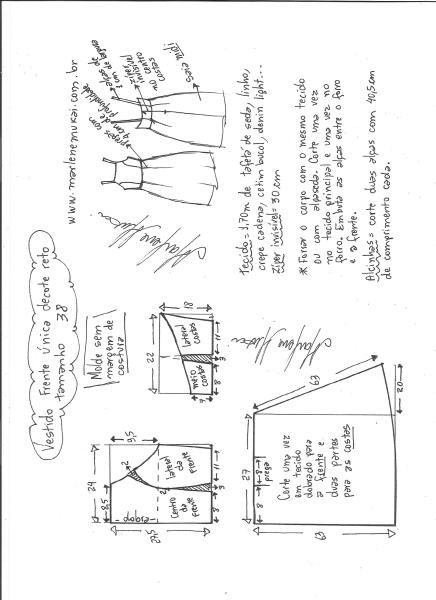 Vestido Frente única decote reto
tamanho 38
www.marlenemukai.com.br
pregas com
4 cm de
profundidade
alças de
1 cm de largura
zíper
invisível
no centro
costas
saia midi
Marlene Mukai
Tecido = 1.70m de tafetá de seda, linho,
crepe cadena, cetim bucol, denin light...
Zíper invisível = 30 cm
* Forrar o corpo com o mesmo tecido
ou com alpaseda. Corte uma vez
no tecido principal e uma vez no
forro. Embuta as alças entre o forro
e a frente.
Alcinhas = corte duas alças com 40,5cm
de comprimento cada.
Molde sem
margem de
costura
24
8,5
9,5
2
2
dobra
27,5
Centro
da
frente
lateral
da
frente
8
3
11
22
18
4
meio
costas
lateral
costas
8
3
11
Marlene Mukai
27
8
prega
8
63
63
20
Corte uma vez
em tecido
dobrado para
a frente e
duas partes
para as costas